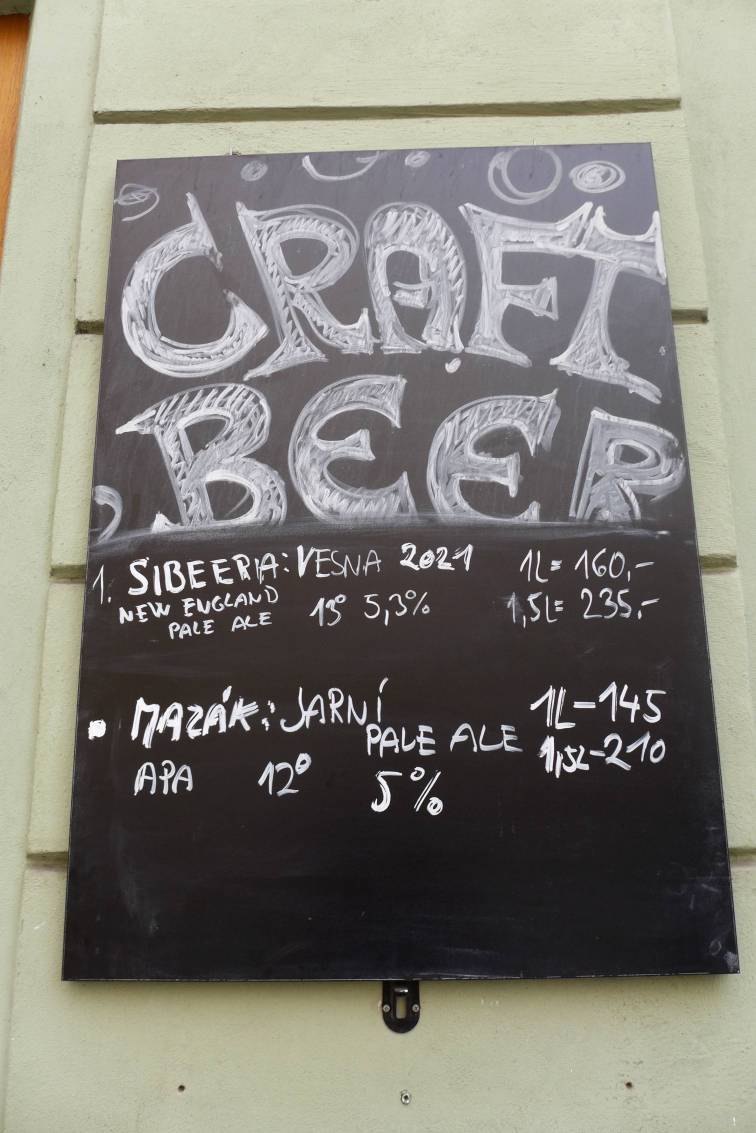 CRAFT
BEER
1. SIBEERIA: VESNA 2021 1L= 160,-
NEW ENGLAND PALE ALE 13° 5,3% 1,5L= 235,-
MAZÁK: JARNÍ 1L-145
PALE ALE 1,5L-210
APA 12° 5%